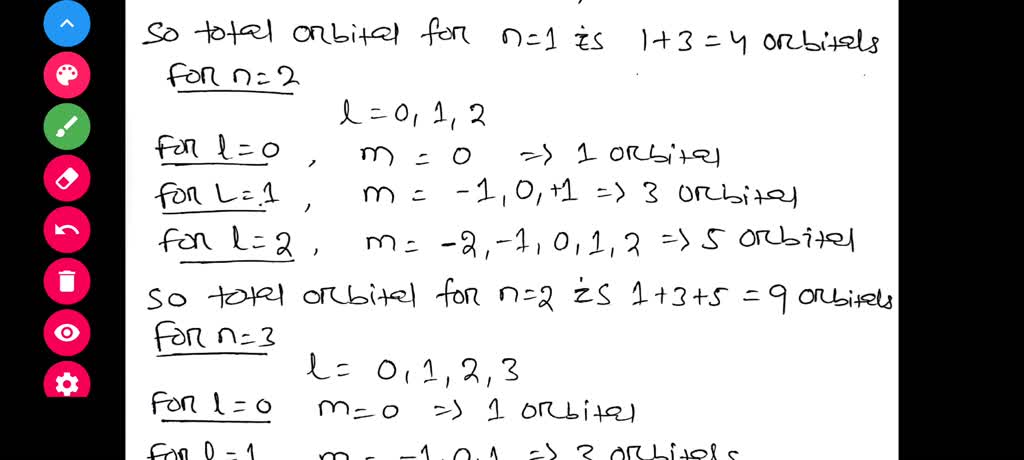 So total orbital for n=1 is 1+3=4 orbitals
for n=2
l=0, 1, 2
for l=0, m = 0 => 1 orbital
for L=1, m = -1, 0, +1 => 3 orbital
for l=2, m= -2, -1, 0, 1, 2 => 5 orbital
so total orbital for n=2 is 1+3+5 = 9 orbitals
for n=3
l= 0, 1, 2, 3
for l=0 m=0 => 1 orbital
for l=1 m= -1, 0, 1 => 3 orbitals